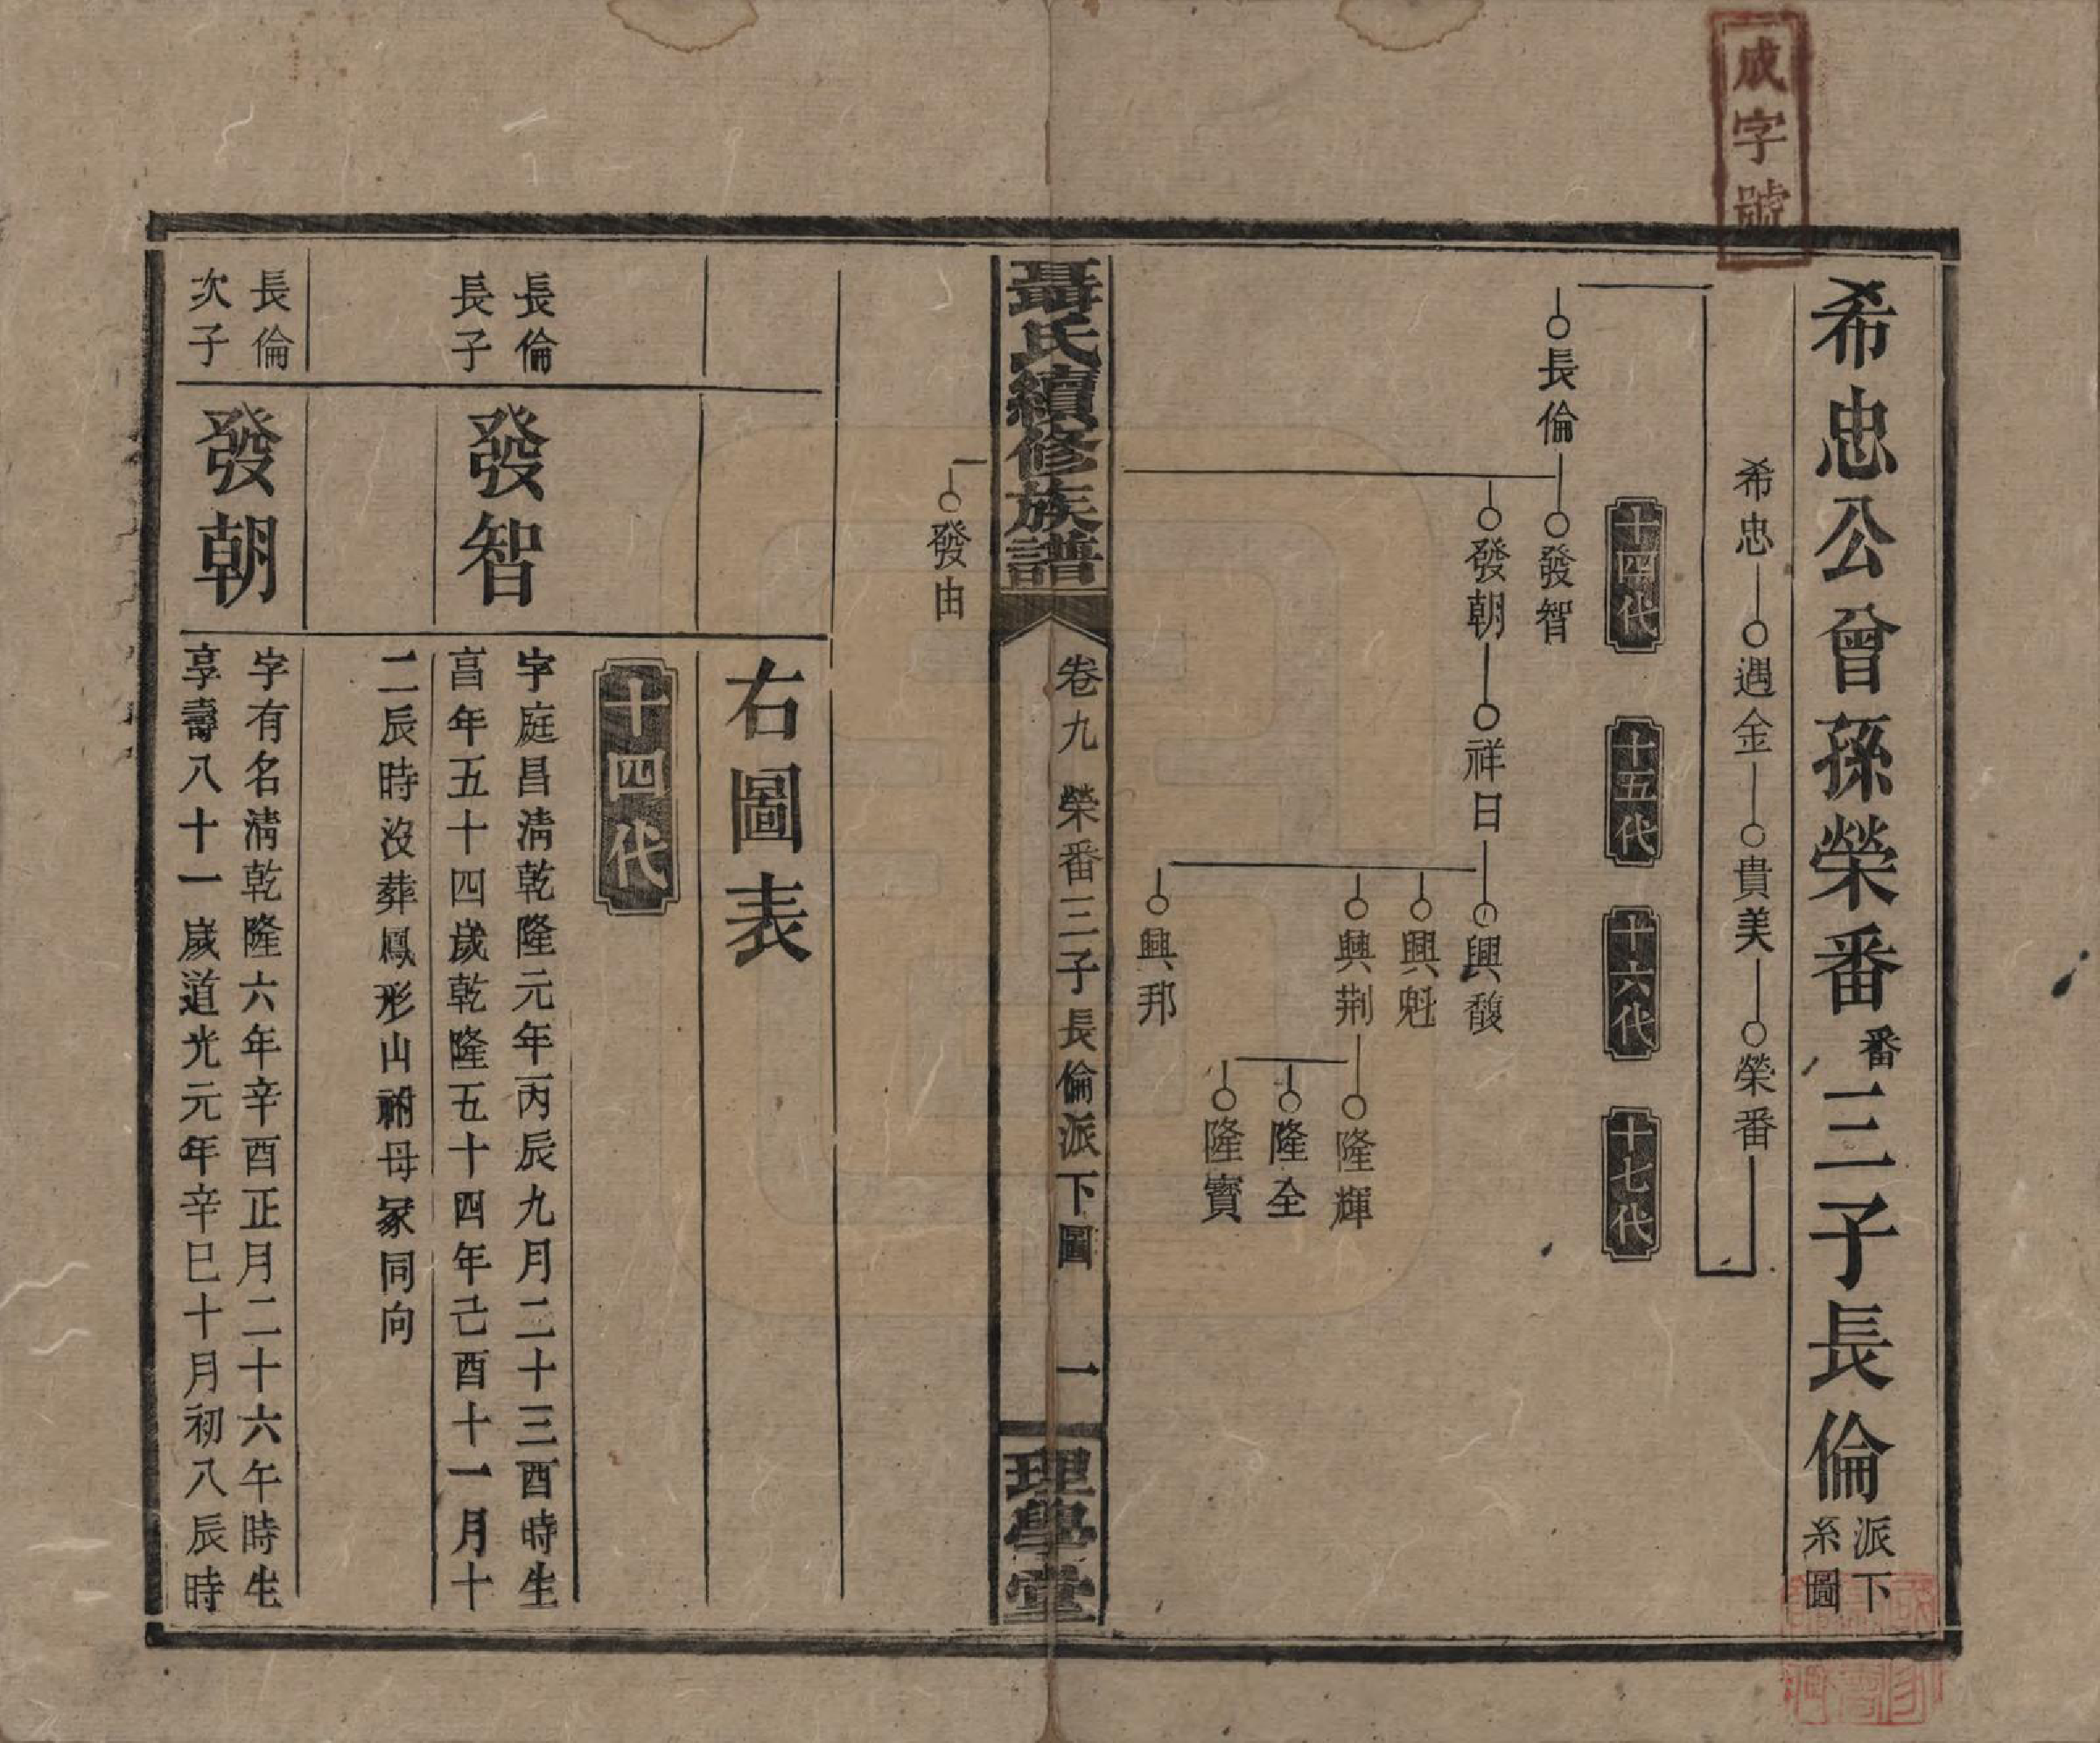 成字號
希忠公曾孫榮番番三子長倫派下系圖
希忠 遇金 貴美 榮番
十四代 十五代 十六代 十七代
長倫 發智
發朝 祥日 興馥
興魁
興荆 隆輝
隆全
隆寳
興邦
聶氏續修族譜 卷九 榮番三子長倫派下圖 一 理學堂
發由
右圖表
十四代
長倫
長子
發智
字庭昌淸乾隆元年丙辰九月二十三酉時生
亯年五十四歲乾隆五十四年己酉十一月十
二辰時沒葬鳳形山祔母冢同向
長倫
次子
發朝
字有名淸乾隆六年辛酉正月二十六午時生
享壽八十一歲道光元年辛巳十月初八辰時